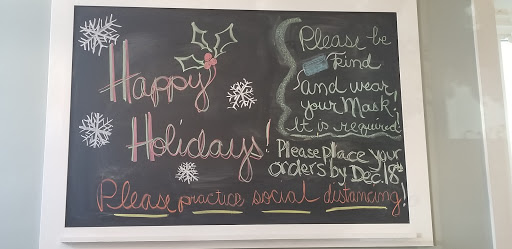 Happy
Holidays!
Please be
kind
and wear
your Mask!
It is required!
Please place your
orders by Dec. 18th
Please practice social distancing!